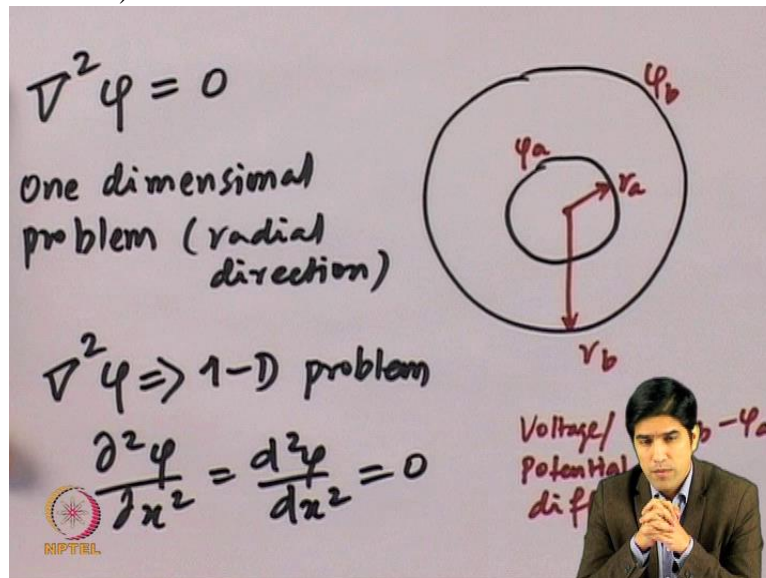 ∇²φ = 0
one dimensional
problem (radial
direction)
∇²φ => 1-D problem
∂²φ/∂x² = d²φ/dx² = 0
φb
φa
ra
rb
Voltage/ b - φa
Potential
diff
NPTEL